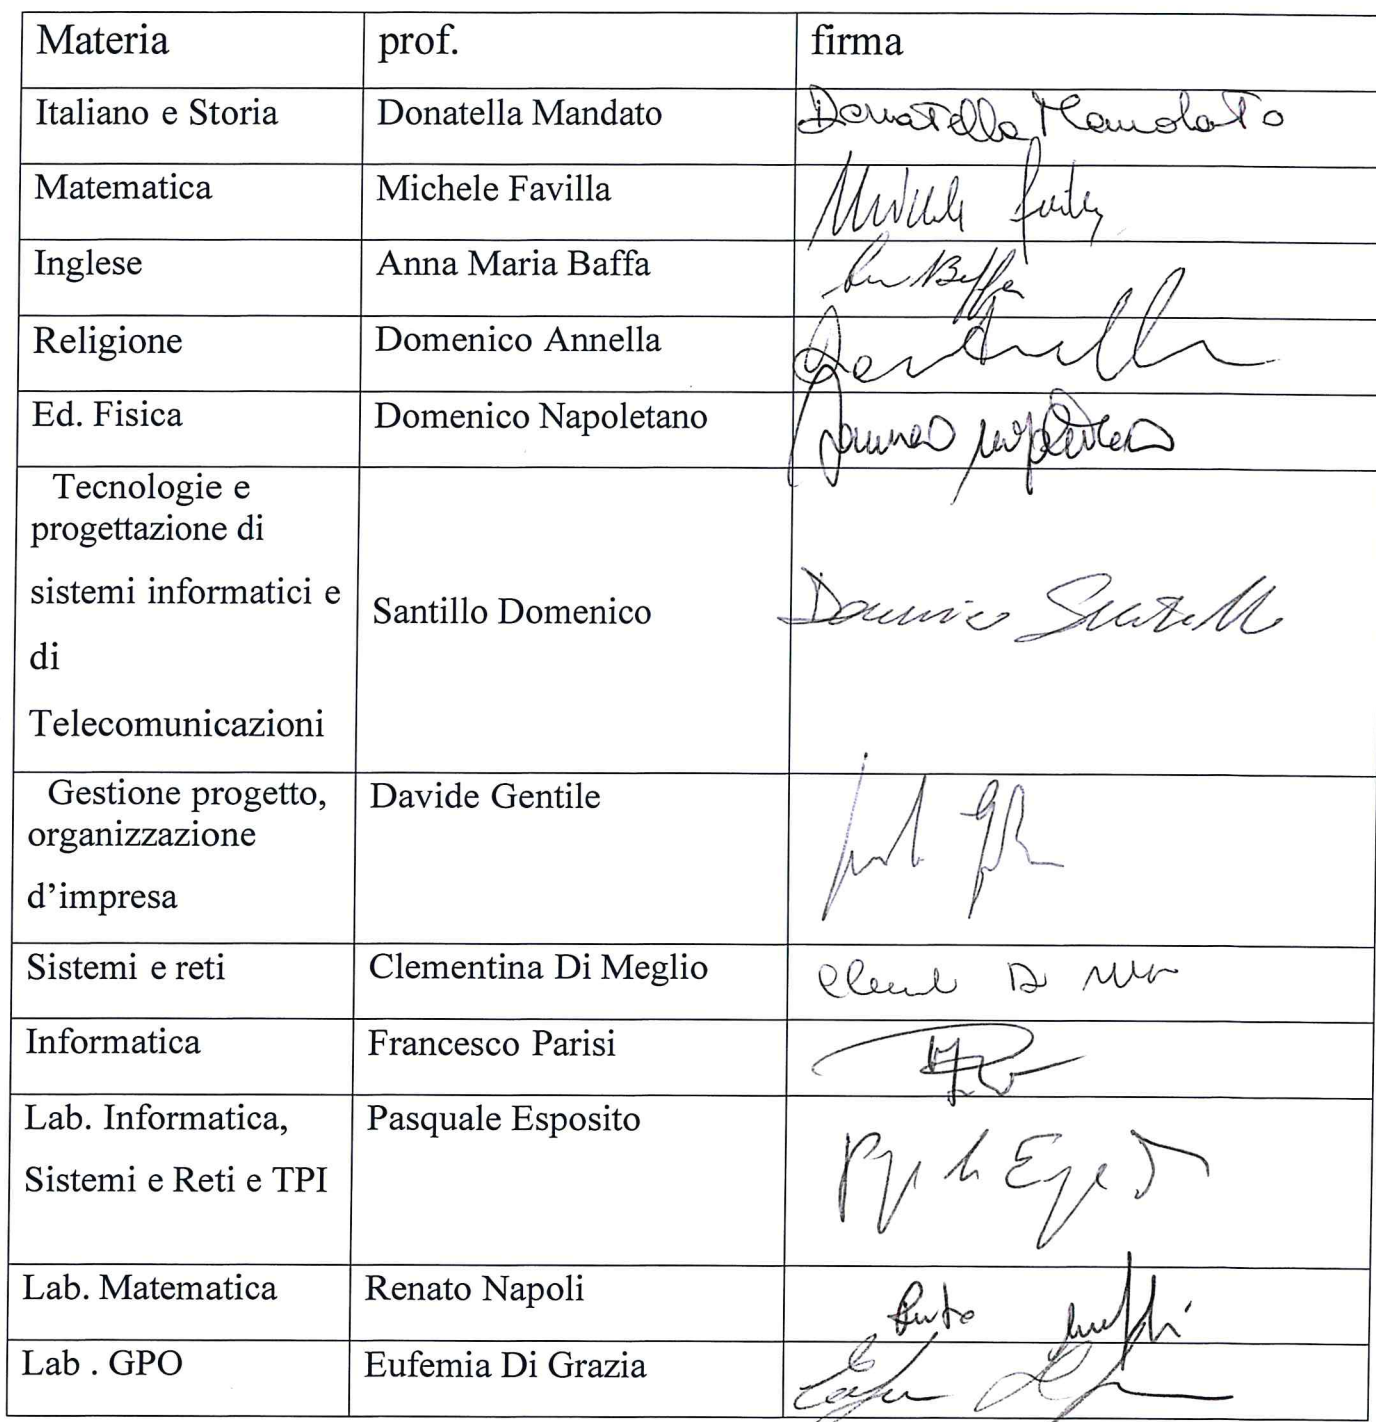 Materia prof. firma
Italiano e Storia Donatella Mandato Donatella Mandato
Matematica Michele Favilla
Inglese Anna Maria Baffa
Religione Domenico Annella
Ed. Fisica Domenico Napoletano
Tecnologie e
progettazione di
sistemi informatici e
di
Telecomunicazioni
Santillo Domenico Domenico Santillo
Gestione progetto, Davide Gentile
organizzazione
d’impresa
Sistemi e reti Clementina Di Meglio
Informatica Francesco Parisi
Lab. Informatica, Pasquale Esposito
Sistemi e Reti e TPI
Lab. Matematica Renato Napoli
Lab . GPO Eufemia Di Grazia